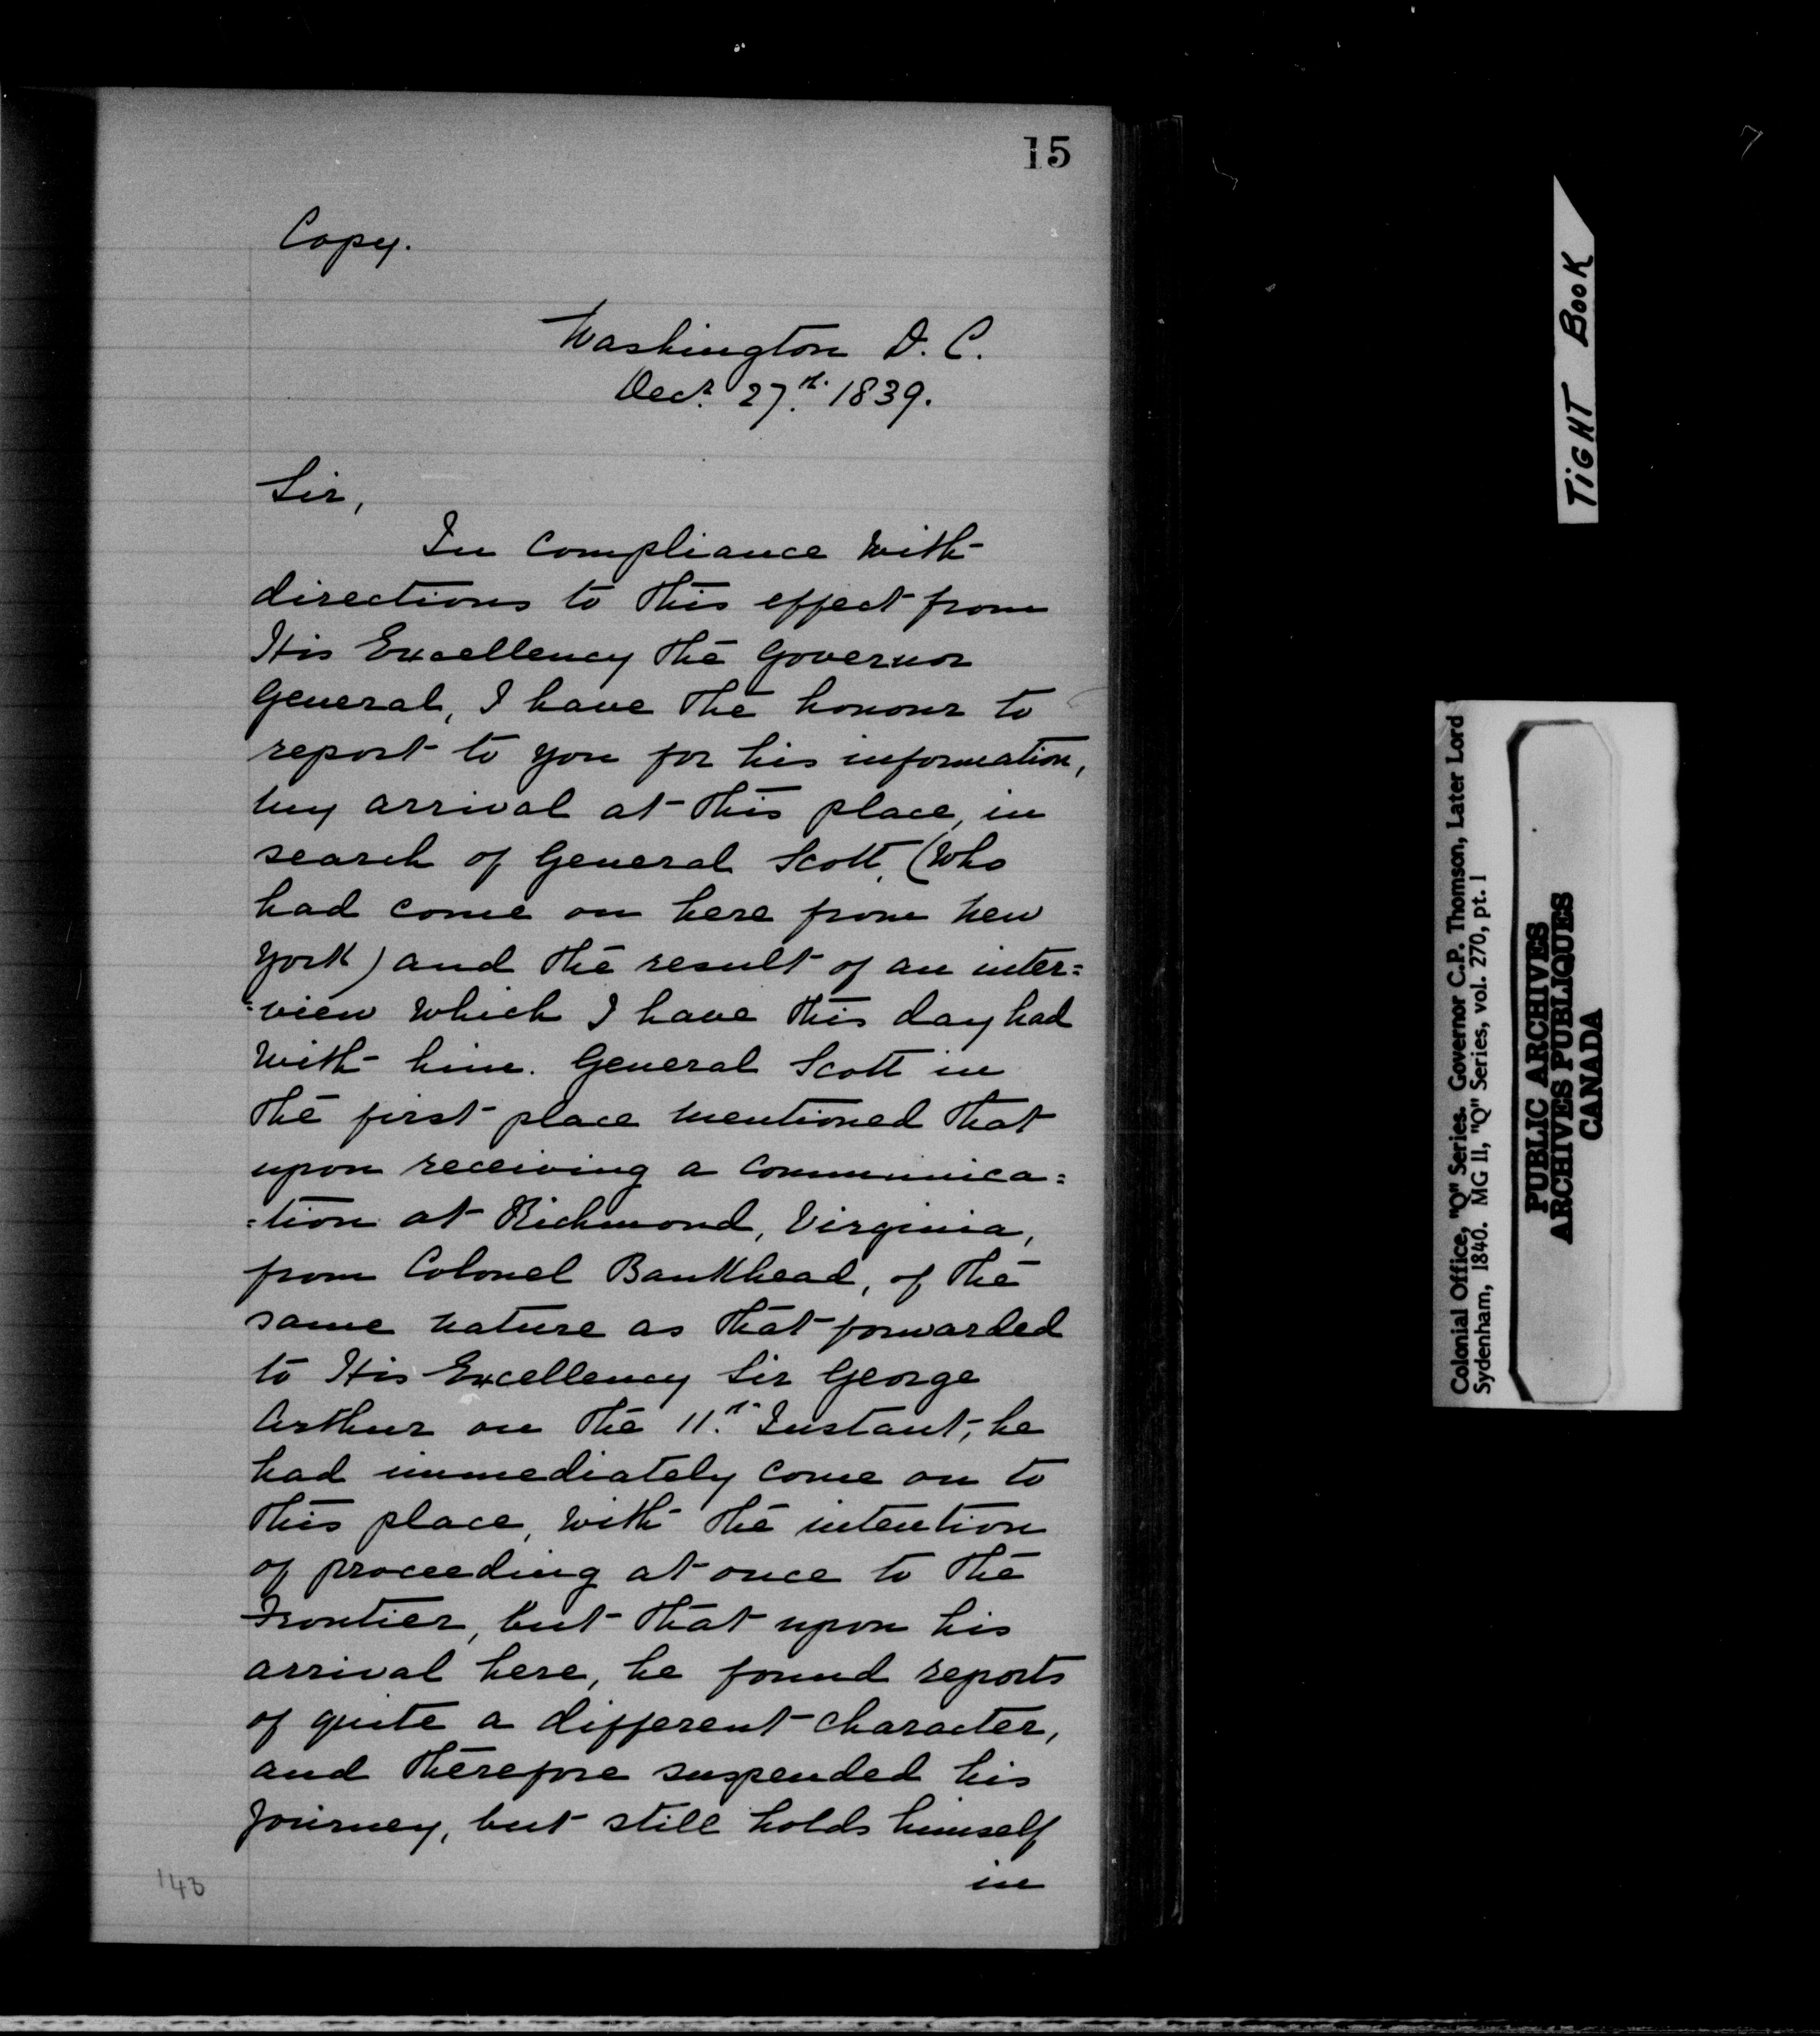 15
Copy.
Washington D. C.
Decr. 27th. 1839.
Sir,
In compliance with
directions to this effect from
His Excellency the Governor
General, I have the honour to
report to you for his information,
my arrival at this place, in
search of General Scott, (who
had come on here from New
York) and the result of an inter=
=view which I have this day had
with him. General Scott in
the first place mentioned that
upon receiving a communica=
=tion at Richmond, Virginia,
from Colonel Bankhead, of the
same nature as that forwarded
to His Excellency Sir George
Arthur on the 11th. Instant, he
had immediately come on to
this place, with the intention
of proceeding at once to the
Frontier, but that upon his
arrival here, he found reports
of quite a different character,
and therefore suspended his
journey, but still holds himself
in
TIGHT BOOK
Colonial Office, "Q" Series. Governor C.P. Thomson, Later Lord
Sydenham, 1840. MG 11, "Q" Series, vol. 270, pt. 1
PUBLIC ARCHIVES
ARCHIVES PUBLIQUES
CANADA